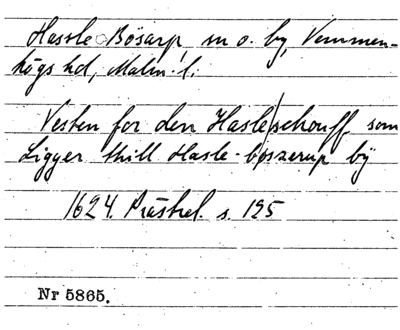 Hassle-Bösarp, sn o. by, Vemmen-
högs hd, Malm. l.
Vesten for den Hasle/schouff som
Ligger thill Hasle-boszerup bÿ
1624. Prästrel. s. 195
Nr 5865.